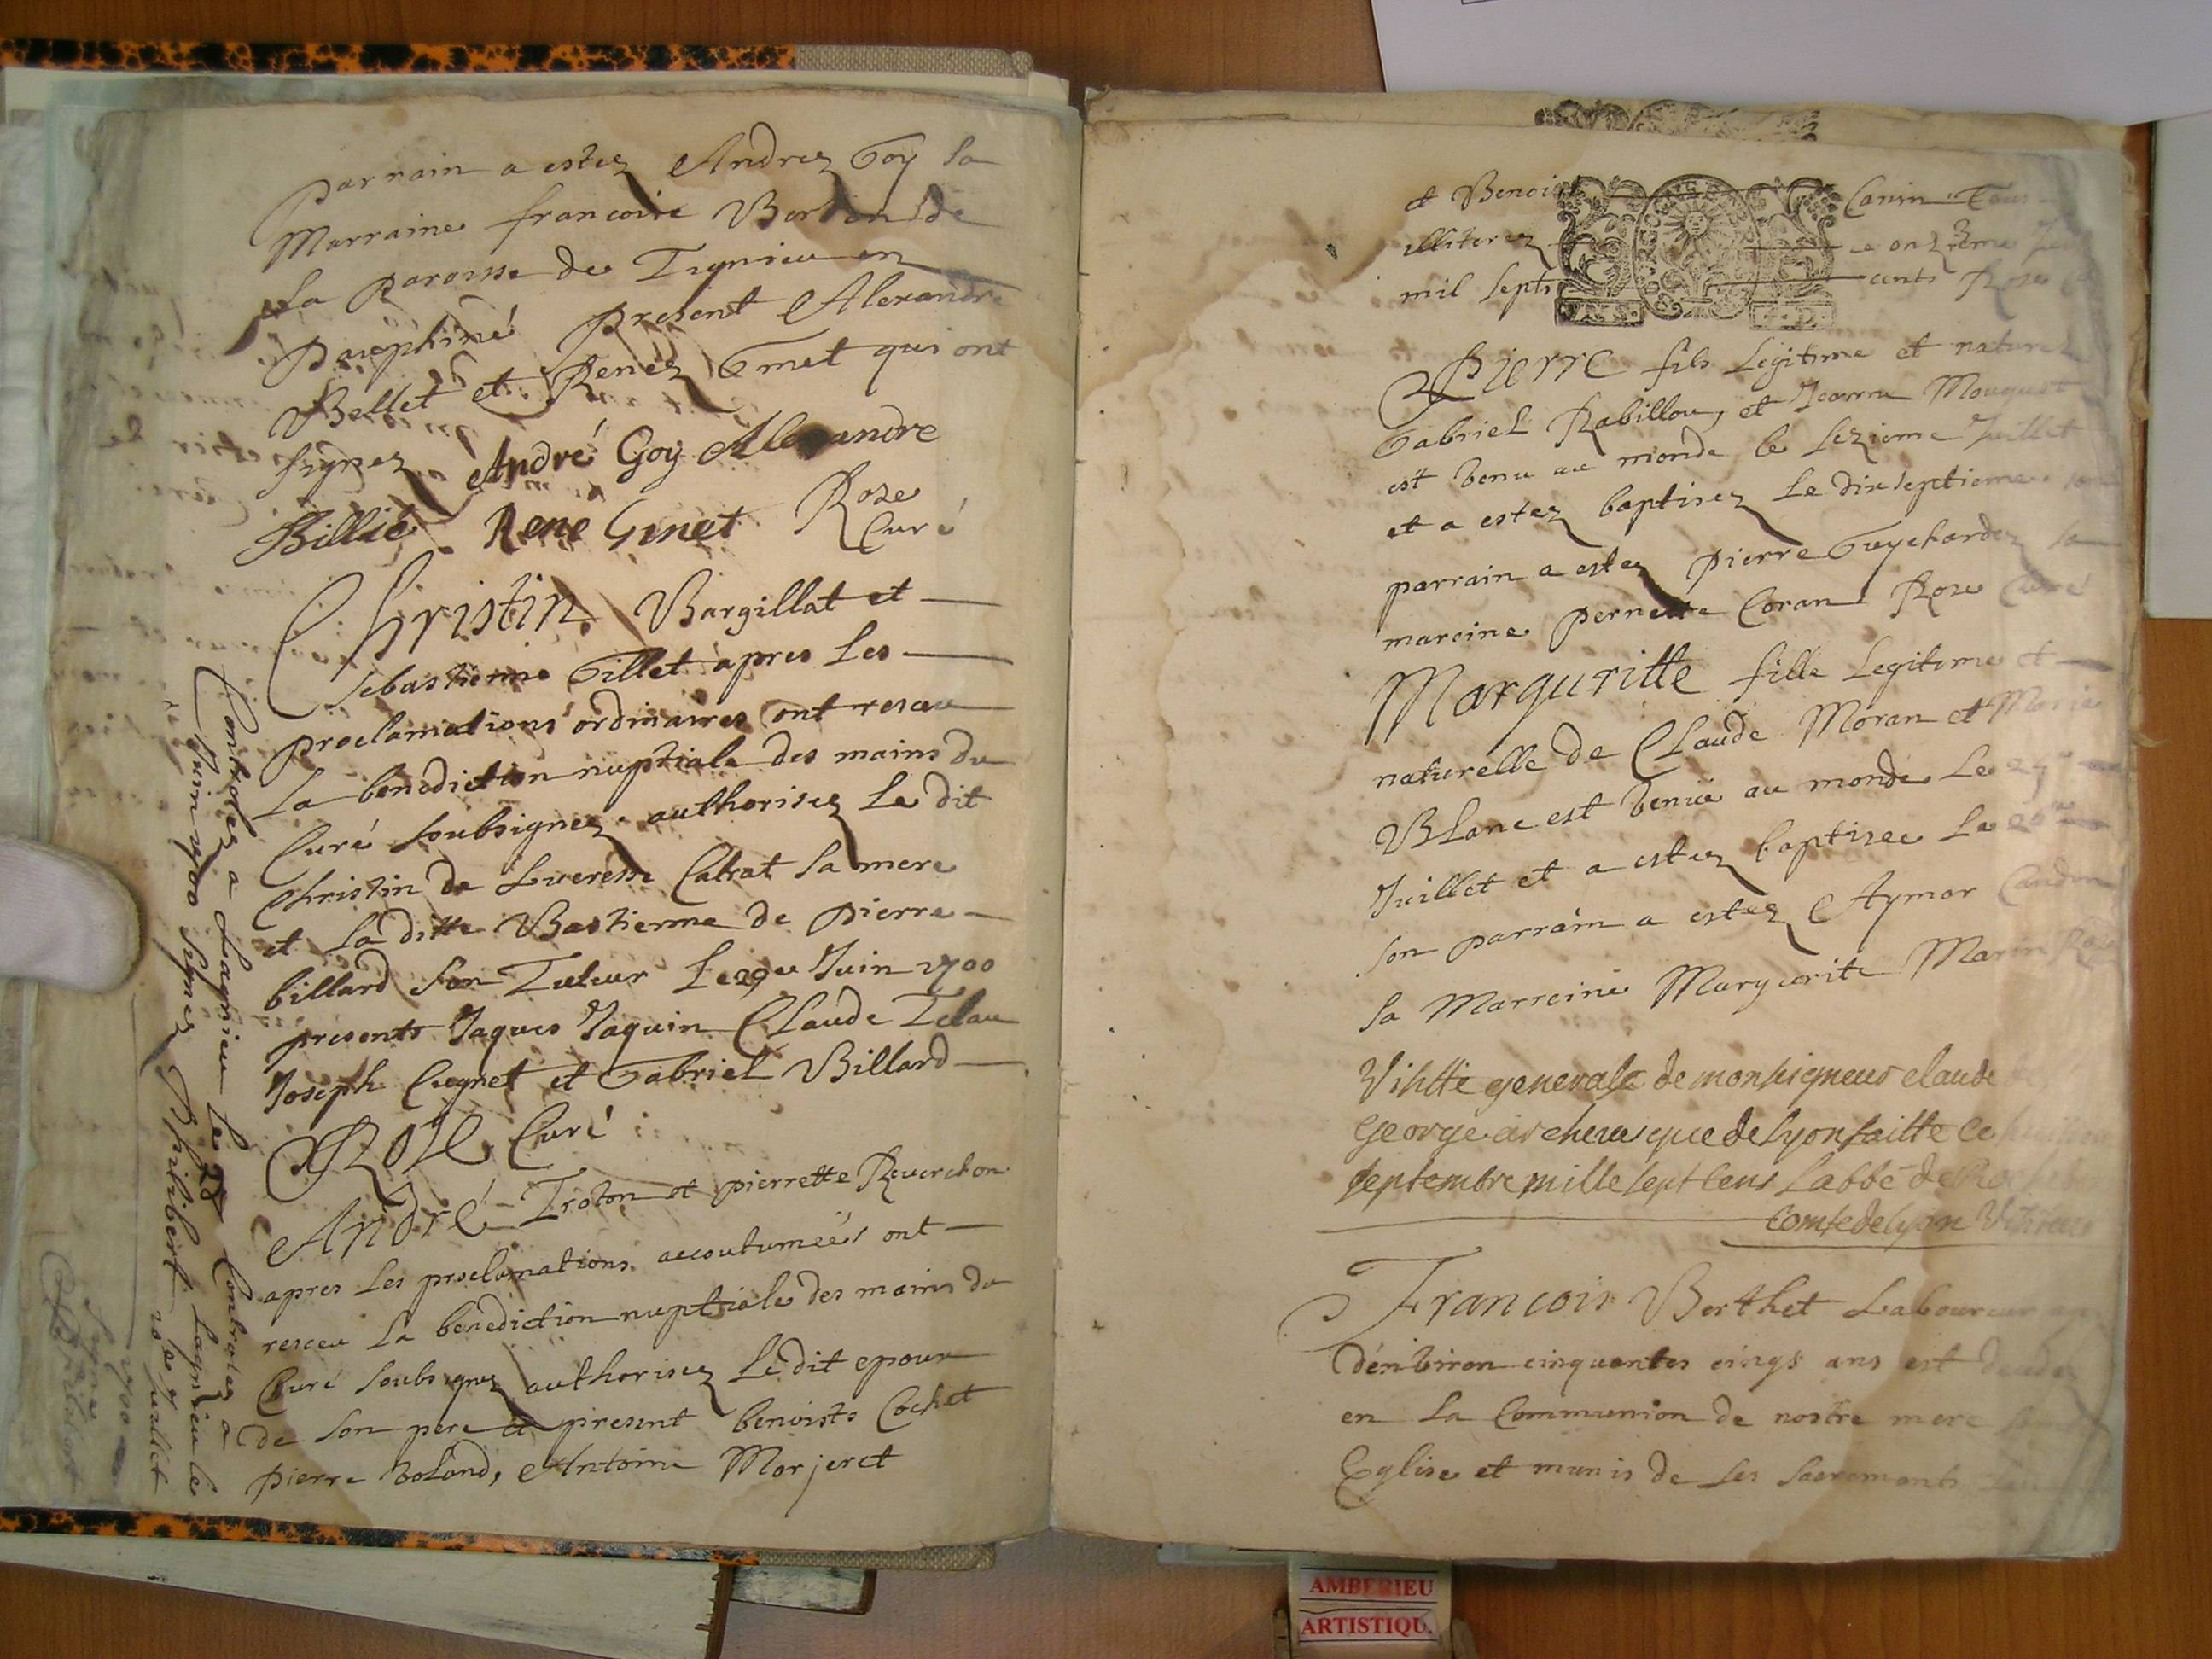 Parrain a estez Andrez Goy sa
Marraine francoise de
la Paroisse de Tignieu en
Dauphiné Present Alexandre
Bellet et Renez Ginet qui ont
signez André Goy Alexandre
Billié René Ginet Roze
Curé
Christin Bargillat et
Sebastienne Gillet apres les
proclamations ordinaires ont resceu
la benediction nuptiale des mains du
Curé soubsignez authorisez le dit
Christin de Lucresse Catrat sa mere
et la ditte Bastienne de Pierre
billard son Tuteur le 29e Juin 1700
presents Jaques Jaquin Claude
Joseph Cugnet et Gabriel Billard
Roze Curé
André Troton et pierrette Reverchon
apres les proclamations accoutumeés ont
resceu la benediction nuptiale des mains du
Curé soubsignez authorisez le dit epoux
de son pere et present benoists Cochet
pierre boland, Antoine Marjeret
Controlez a Lagnieu le 28
Juin 1700 signez Philibert
Controlez a
Lagnieu le
20e Juillet
1700
signé
Philibert
et Benoist Canin Tous
illiterez onzieme
mil septs cents Roze
Pierre fils Legitime et naturel
Gabriel Rabillou, et Jeanne
est venu au monde le sezieme Juillet
et a estez baptisez Le dixseptieme son
parrain a estez pierre Guychardez sa
mareine pernette Coran Roze Curé
Margueritte fille Legitime et
naturelle de Claude Moran et Marie
Blanc est venue au monde Le
Juillet et a estez baptisee Le
son parrain a estez Aymar
sa Marreine Marguerite Marin Roze
Visitte generale de monseigneur claude
george archevesque de lyon faitte le
septembre mille sept cens Labbé de
comte de lyon Visiteur
Francois Berthet Laboureur
d'environ cinquantes cinqs ans est
en la Communion de nostre mere
Eglise et munis de ses sacrements
AMBERIEU
ARTISTIQU.